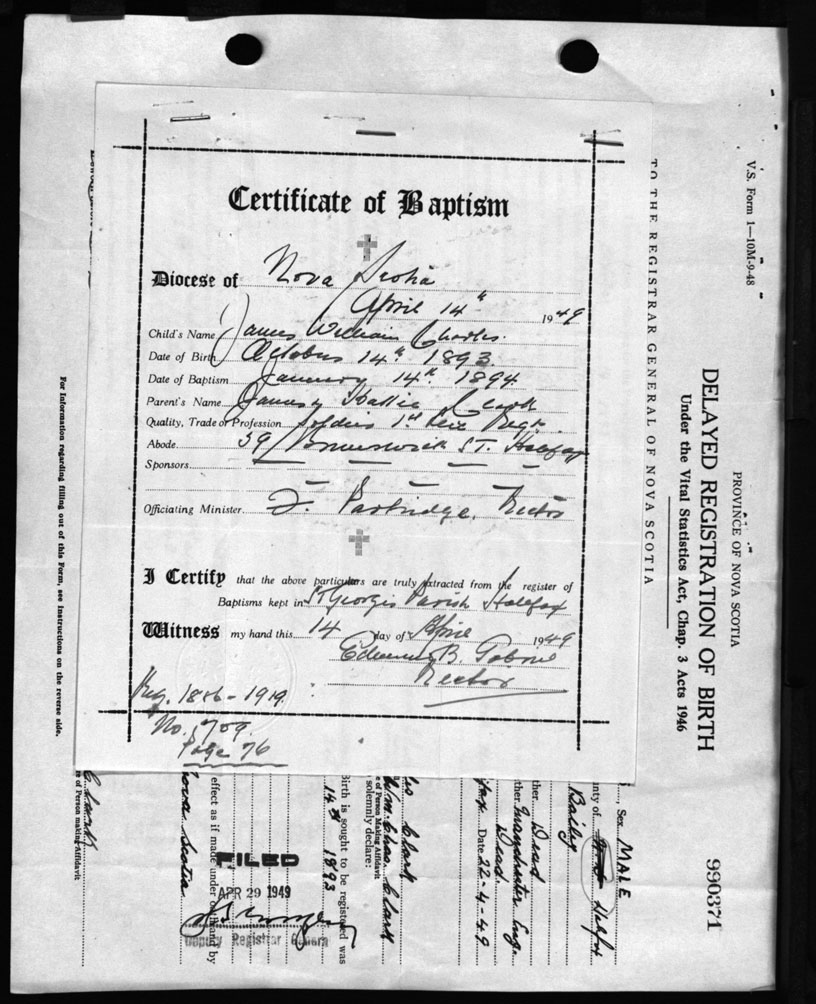 Certificate of Baptism
Diocese of Nova Scotia
April 14th 1949
Child's Name James William Charles.
Date of Birth October 14th 1893
Date of Baptism January 14th 1894
Parent's Name James & Hattie Clark
Quality, Trade or Profession Soldier 1st Regt.
Abode 39 Brunswick St. Halifax
Sponsors
Officiating Minister F. Partridge, Rector
I Certify that the above particulars are truly extracted from the register of
Baptisms kept in St Georges Parish Halifax
Witness my hand this 14 day of April 1949
Edward B. Gabriel
Rector
Reg. 1886-1919.
No. 1709.
Page 76
V.S. Form 1—10M-9-48
PROVINCE OF NOVA SCOTIA
DELAYED REGISTRATION OF BIRTH
Under the Vital Statistics Act, Chap. 3 Acts 1946
990371
TO THE REGISTRAR GENERAL OF NOVA SCOTIA
, Sex MALE
unty of Halifax
Baily
ther. Dead
ther. Manchester Eng.
Dead.
ifax Date 22-4-49
Clark
Wm. Chas. Clark
e of Person Making Affidavit
solemnly declare:
Birth is sought to be registered was
14 1893
effect as if made under oath and by
Nova Scotia
FILED
APR 29 1949
Deputy Registrar General
Clark
e of Person making Affidavit
For Information regarding filling out of this Form, see Instructions on the reverse side.